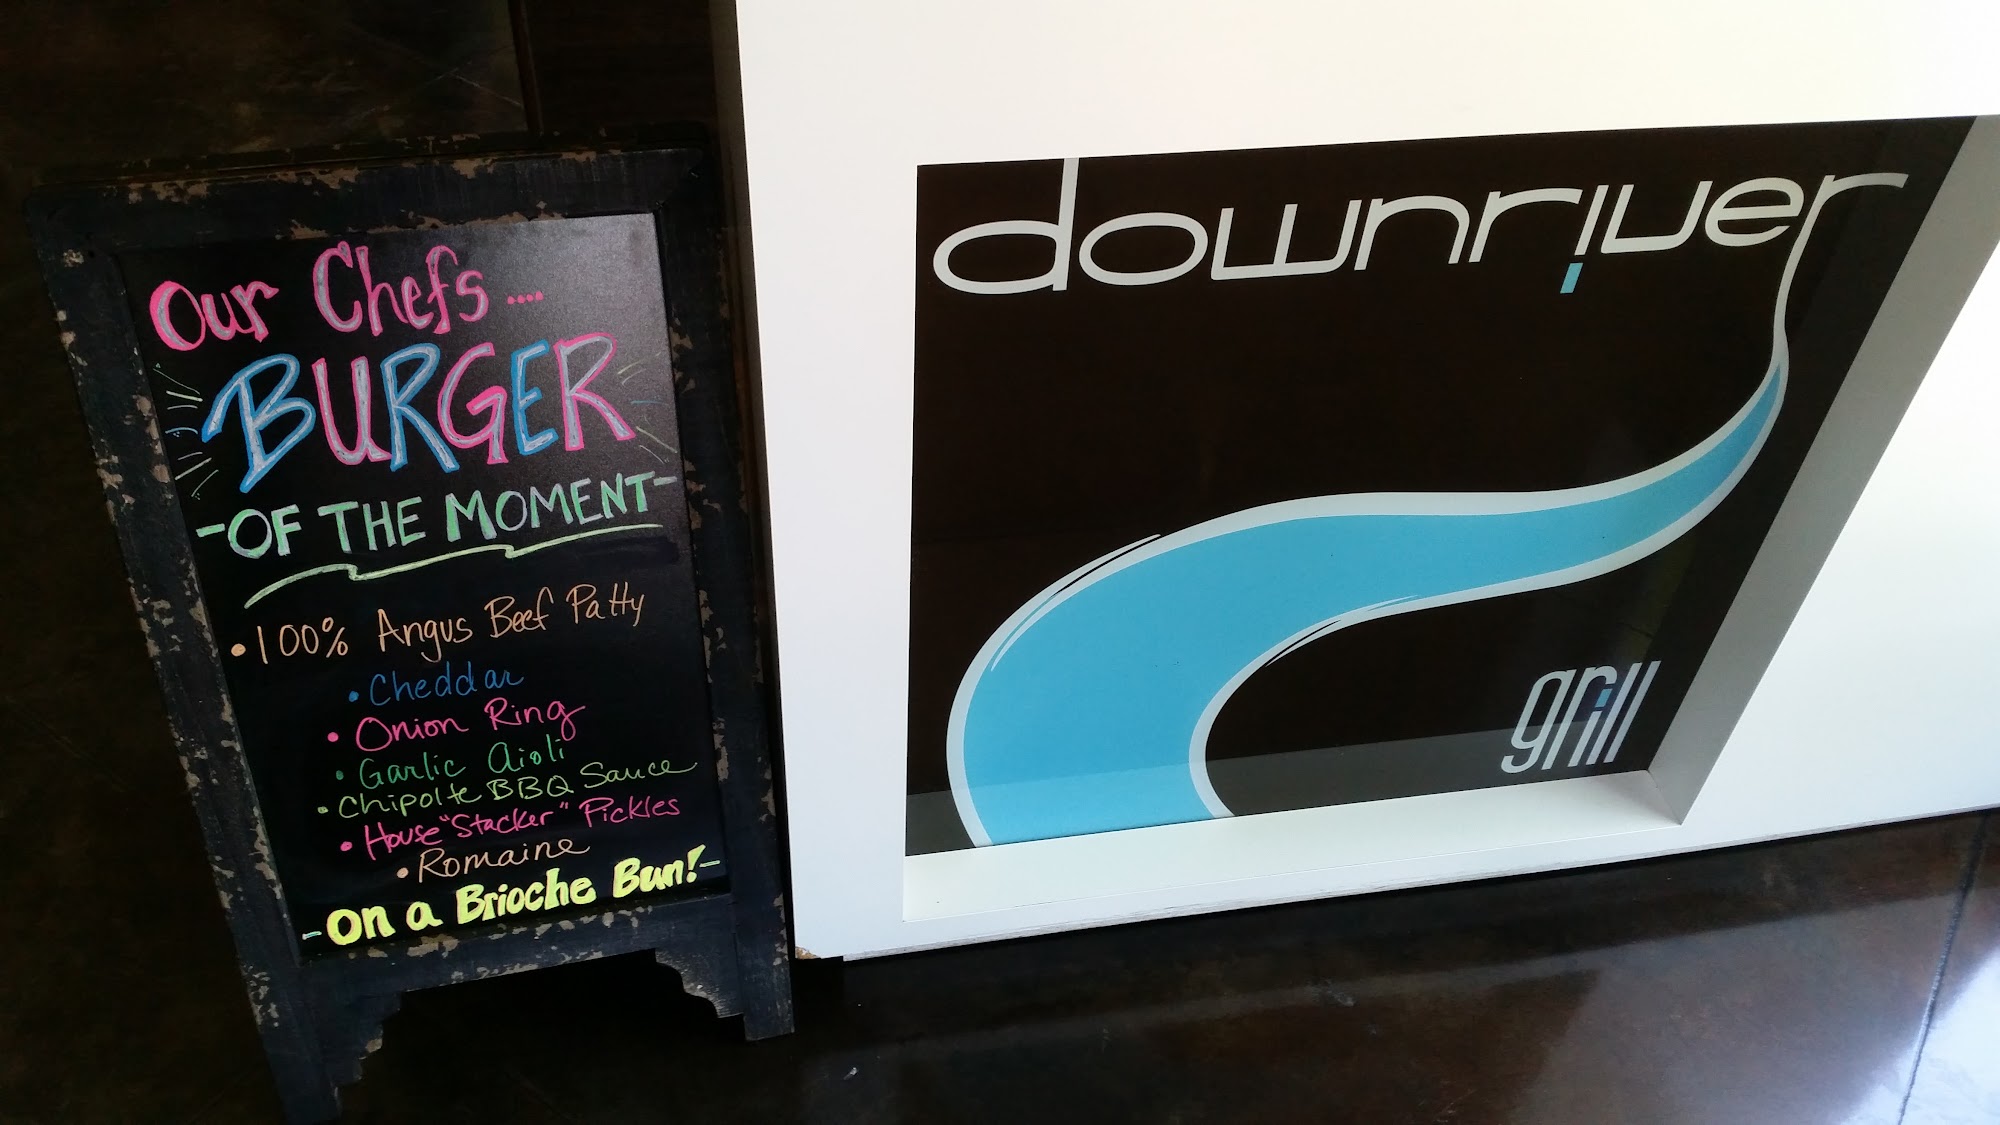 Our Chefs ....
BURGER
-OF THE MOMENT-
• 100% Angus Beef Patty
• Cheddar
• Onion Ring
• Garlic Aioli
• Chipolte BBQ Sauce
• House "Stacker" Pickles
• Romaine
- On a Brioche Bun! -
downriver
grill